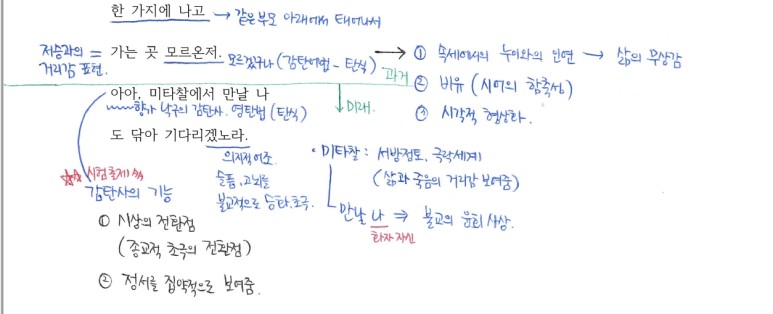 한 가지에 나고 → 같은 부모 아래에서 태어나서
저승과의 = 가는 곳 모르온저. 모르겠구나 (감탄어법 - 탄식) → ① 속세에서의 누이와의 인연 → 삶의 무상감
거리감 표현. 과거 ② 비유 (시어의 함축성)
아아, 미타찰에서 만날 나 ↓미래. ③ 시각적 형상화.
향가 낙구의 감탄사. 영탄법 (탄식)
도 닦아 기다리겠노라.
의지적 어조 • 미타찰 : 서방정토, 극락세계
☆☆ 시험출제
감탄사의 기능 슬픔, 고뇌를 (삶과 죽음의 거리감 보여줌)
불교적으로 승화.초극. 만날 나 ⇒ 불교의 윤회사상.
① 시상의 전환점 화자 자신
(종교적 초극의 전환점)
② 정서를 집약적으로 보여줌.